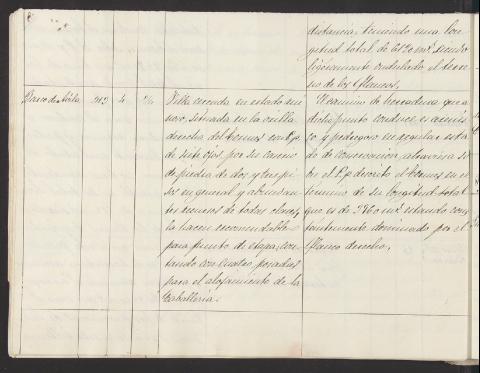 distancia, teniendo una lon-
gitud total de 6120 m.s siendo
ligeramente ondulado el terre-
no de los flancos.
Barco de Avila 313 4
Villa cercada en estado rui-
noso, situada en la orilla
derecha del Tormes con P.p.
de siete ojos, por su caserio
de piedra de dos y tres pi-
sos en general y abundan-
tes recursos de todas clases,
la hacen recomendable
para punto de etapa; con-
tando con cuatro posadas
para el alojamiento de la
Caballeria.
El camino de herradura que a
dicho punto conduce es
y pedregoso en regular esta-
do de conservacion, atraviesa so-
bre el P.p. descrito el Tormes en el
termino de su longitud total
que es de 3760 m.s estando cons-
tantemente dominado por el
flanco derecho.